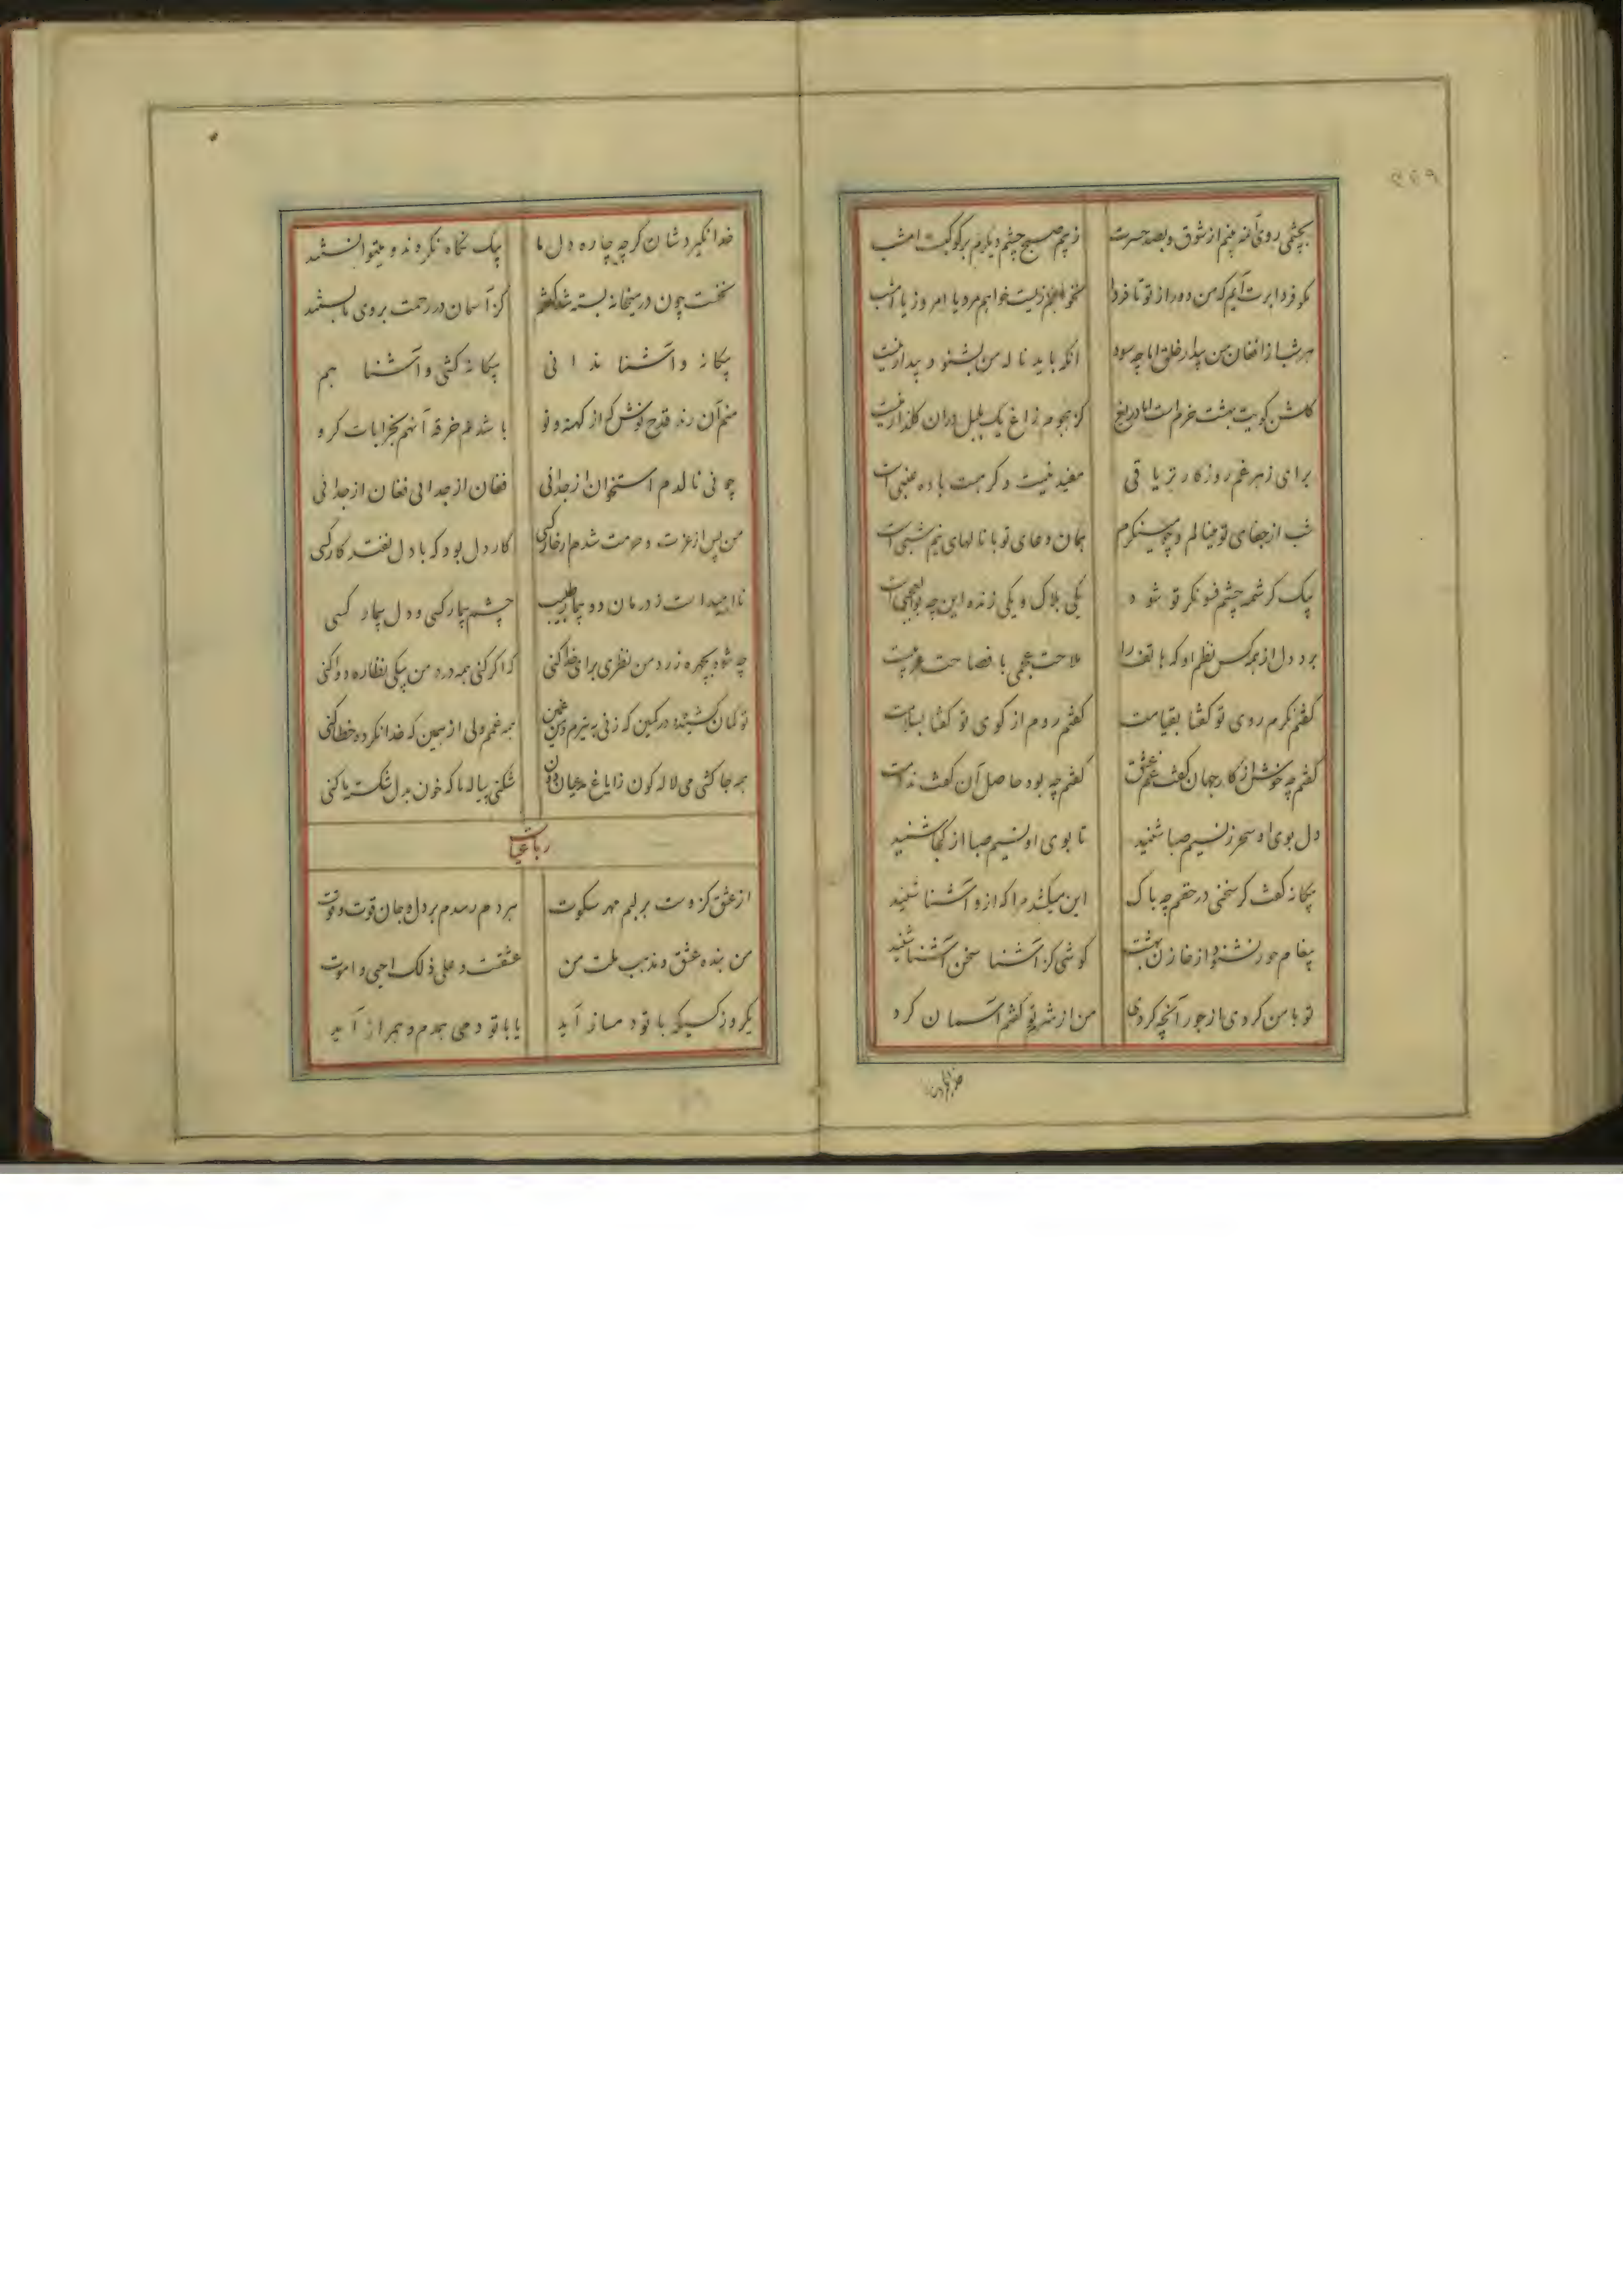 ۲۶۹
بچشمی روی آن مه بینم از شوق و بصد حسرت
ز بیم صبح چشم دیگرم بر کوکبست امشب
مگو فردا برت آیم که من دور از تو تا فردا
نخواهم زیست خواهم مرد یا امروز یا امشب
هر شب از افغان من بیدار خلق اما چه سود
آنکه باید ناله من بشنود بیدار نیست
گلشن کویت بهشت خرم است اما دریغ
کز هجوم زاغ یک بلبل در آن گلزار نیست
برای زهر غم روزگار تریاقی
مفید نیست وگر هست باده عنبی است
شب از جفای تو مینالم و چو مینگرم
همان دعای تو با نالهای نیم شبی است
بیک کرشمه چشم فسونگر تو شود
یکی هلاک و یکی زنده این چه بوالعجبی است
برد دل از همه کس نظم او که هاتف را
ملاحت عجمی با فصاحت عربیست
گفتم نگرم روی تو گفتا بقیامت
گفتم روم از کوی تو گفتا بسلامت
گفتم چه خوش از کار جهان گفت غم عشق
گفتم چه بود حاصل آن گفت ندامت
دل بوی او سحر ز نسیم صبا شنید
تا بوی او نسیم صبا از کجا شنید
بیگانه گفت گر سخنی در حقم چه باک
این میکشد مرا که ازو آشنا شنید
پیغام حور نشنود از خازن بهشت
گوشی کز آشنا سخن آشنا شنید
تو با من کردی از جور آنچه کردی
من از شرم تو گفتم آسمان کرد
خدا نگیردشان گرچه چاره دل ما
بیک نگاه نکردند و میتوانستند
نخست چون در میخانه بسته شد گفتم
کز آسمان در رحمت بروی ما بستند
بیگانه و آشنا ندانی
بیگانه کشی و آشنا هم
منم آن رند قدح نوش که از کهنه و نو
باشدم خرقه آنهم بخرابات گرو
چو نی نالدم استخوان از جدائی
فغان از جدائی فغان از جدائی
من پس از عزت و حرمت شدم ار خار کسی
کار دل بود که با دل نفتد کار کسی
ناامید است ز درمان دو بیمار طبیب
چشم بیمار کسی و دل بیمار کسی
چه شود بچهره زرد من نظری برای خدا کنی
که اگر کنی همه درد من بیکی نظاره دوا کنی
تو کمان کشیده در کمین که زنی به تیرم و من غمین
همه غمم ولی از همین که خدا نکرده خطا کنی
همه جا کشی می لاله گون ز ایاغ مدعیان دون
شکنی پیاله ما که خون بدل شکسته ما کنی
رباعیات
از عشق کز وست بر لبم مهر سکوت
هر دم رسدم بر دل و جان قوت و قوت
من بنده عشق و مذهب ملت من
عشقست و علی ذلک احیی و اموت
یکروز کسیکه با تو دمساز آید
یا با تو دمی همدم و همراز آید